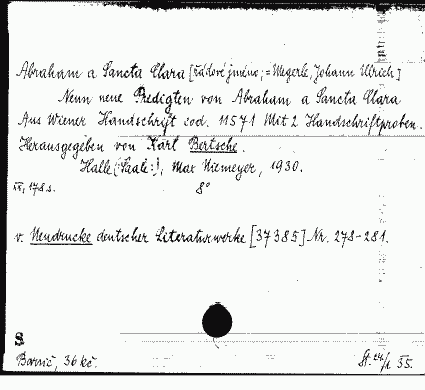 Abraham a Sancta Clara [řádové jméno; = Megerle, Johann Ulrich]
Neun neue Predigten von Abraham a Sancta Clara
Aus Wiener Handschrift cod. 11571 Mit 2 Handschriftproben.
Herausgegeben von Karl Bertsche.
Halle (:Saale:), Max Niemeyer, 1930.
XX, 178 s. 8°
v. Neudrucke deutscher Literaturwerke [37385] Nr. 278-281.
S
36 kč. St. 55.